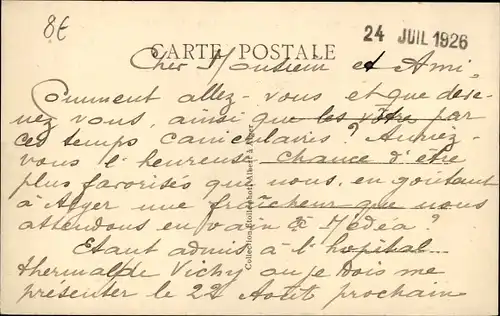 8€
24 JUIL 1926
CARTE POSTALE
Cher Monsieur et Ami
Comment allez-vous et que deve-
nez vous, ainsi que les vôtres par
ces temps caniculaires? Auriez-
vous l'heureuse chance d'être
plus favorisés que nous, en goûtant
à Alger une fraîcheur que nous
attendons en vain à Médéa?
Etant admis à l'hopital
thermal de Vichy où je dois me
présenter le 22 Août prochain
Collection Etoile
Alger